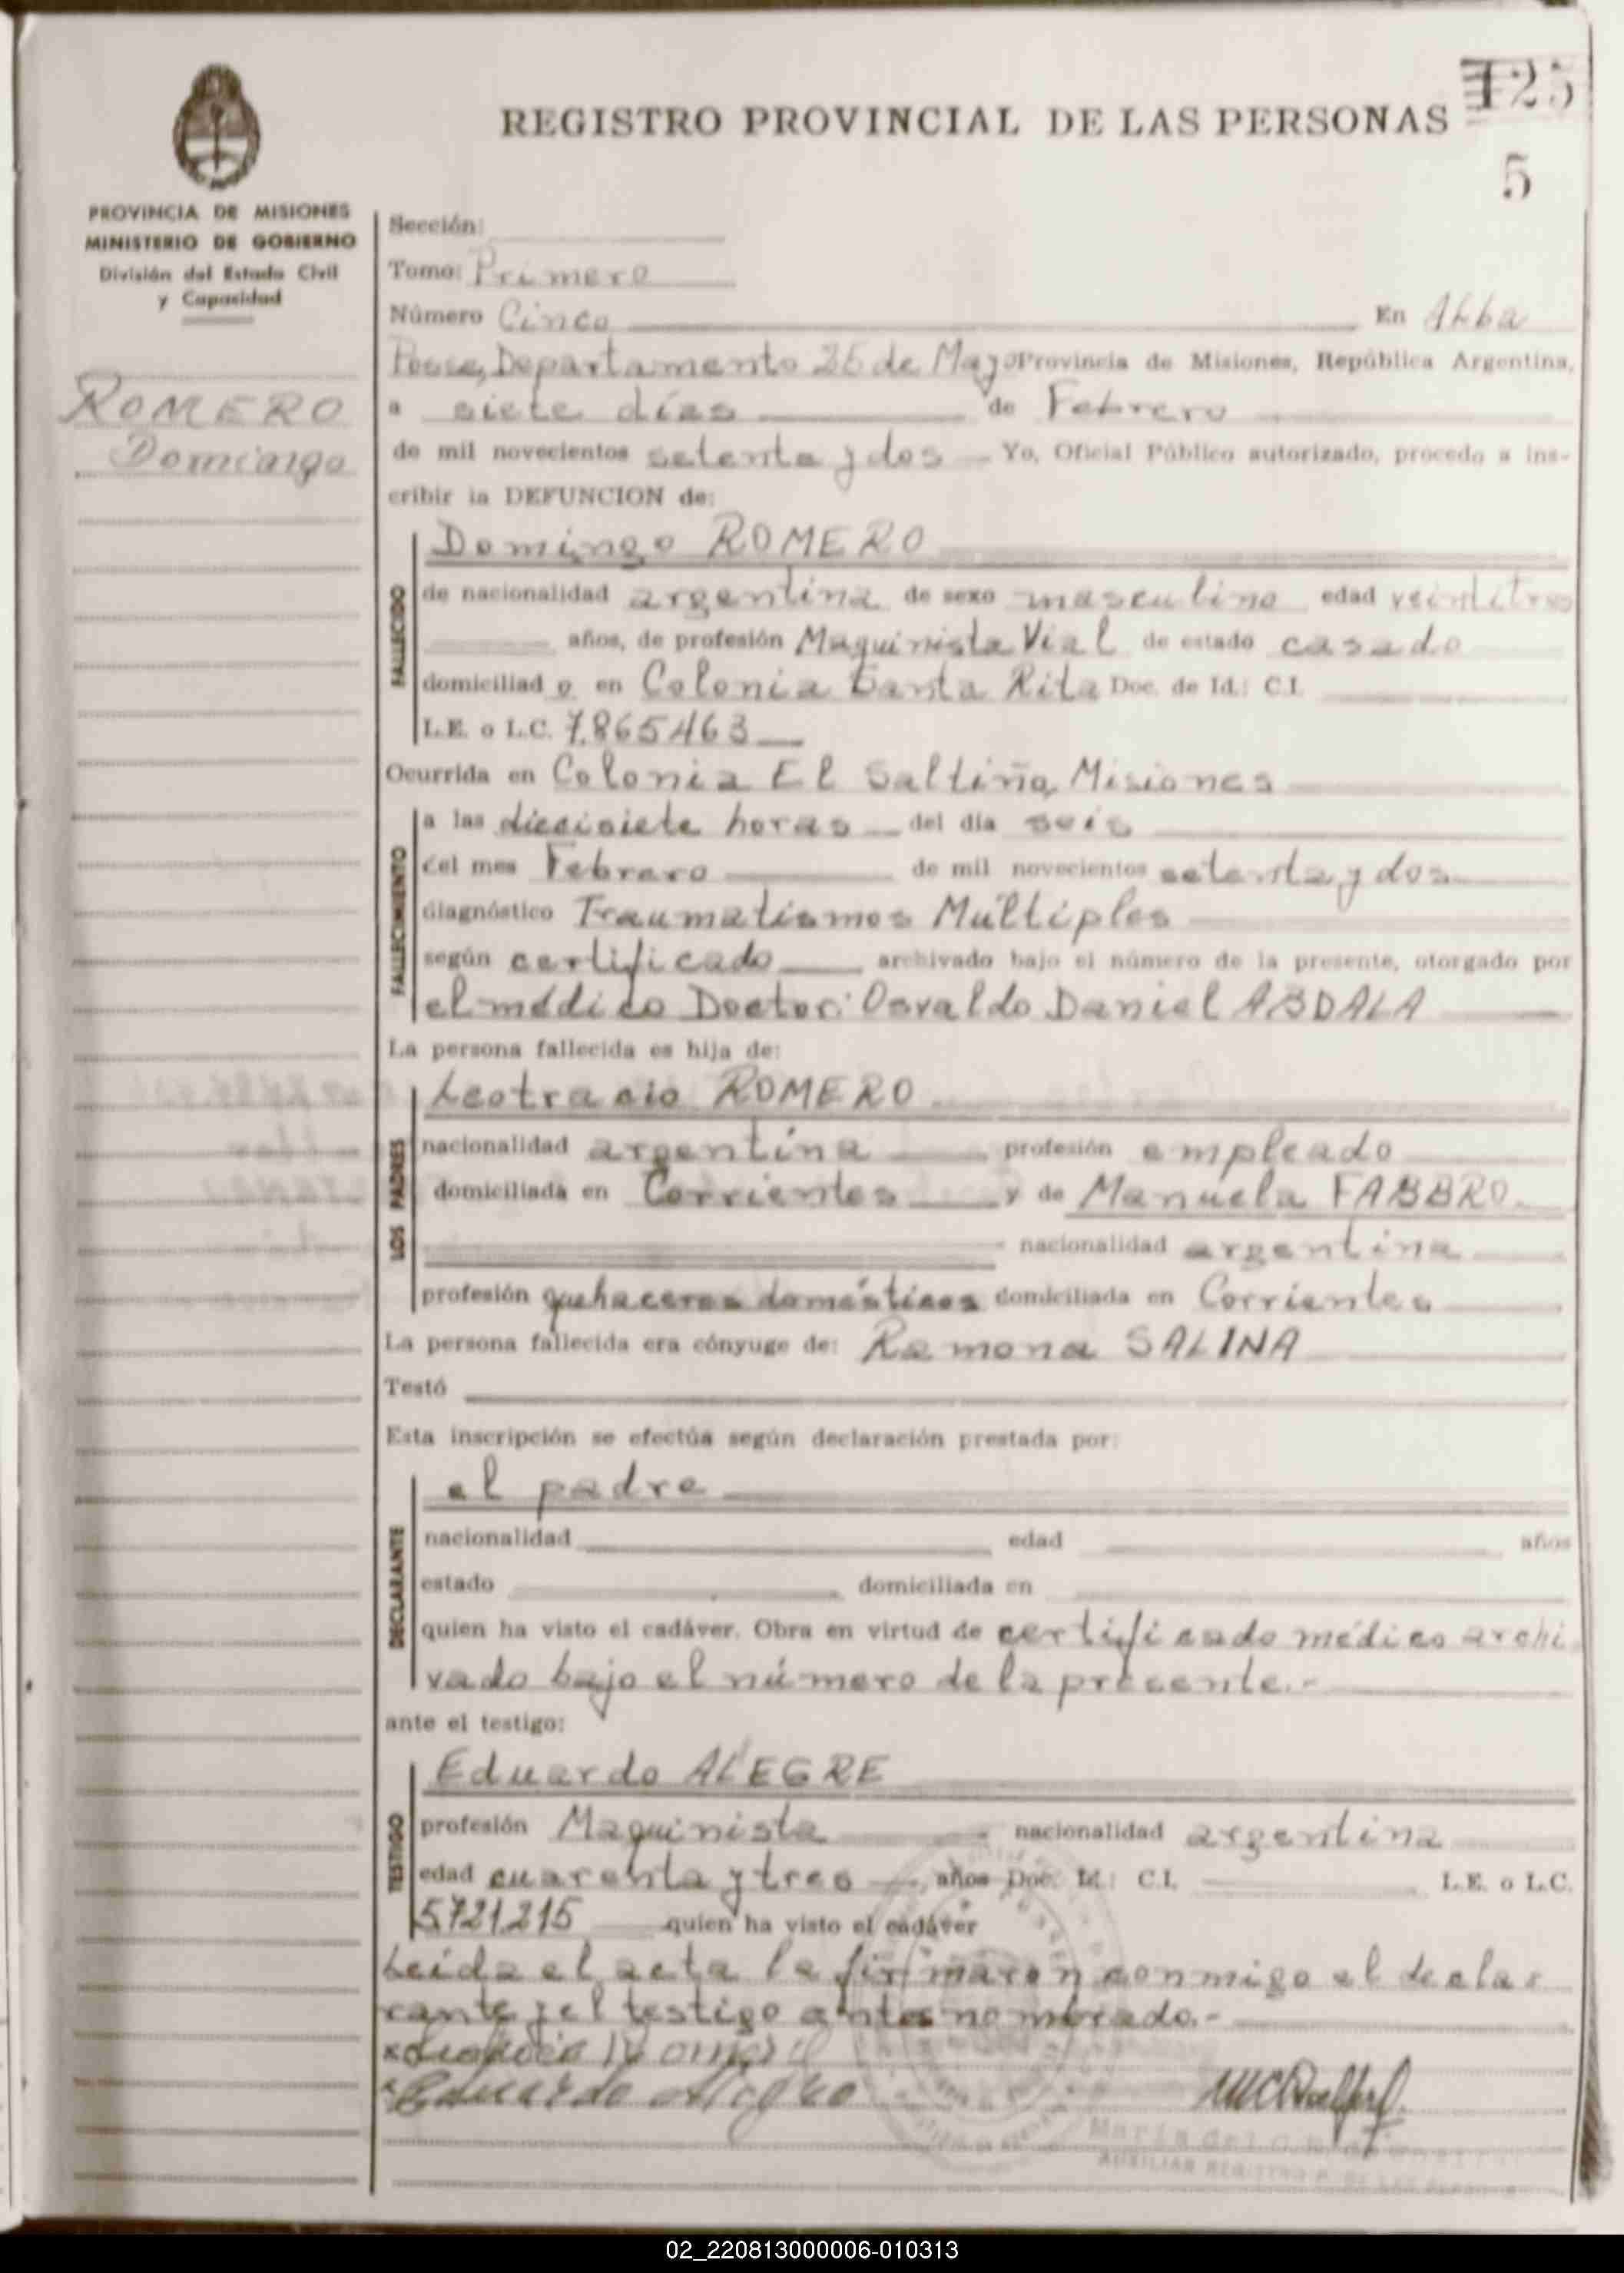 125
REGISTRO PROVINCIAL DE LAS PERSONAS
5
PROVINCIA DE MISIONES
MINISTERIO DE GOBIERNO
División del Estado Civil
y Capacidad
ROMERO
Domingo
Sección:
Tomo: Primero
Número Cinco En Alba
Posse, Departamento 25 de Mayo Provincia de Misiones, República Argentina,
a siete días de Febrero
de mil novecientos setenta y dos Yo, Oficial Público autorizado, procedo a ins-
cribir la DEFUNCION de:
Domingo ROMERO
FALLECIDO
de nacionalidad argentina de sexo masculino edad veintitres
años, de profesión Maquinista Vial de estado casado
domiciliad o en Colonia Santa Rita Doc. de Id.: C.I.
L.E. o L.C. 7.865463
Ocurrida en Colonia El Saltiño, Misiones
FALLECIMIENTO
a las diecisiete horas del día seis
del mes Febrero de mil novecientos setenta y dos
diagnóstico Traumatismos Múltiples
según certificado archivado bajo el número de la presente, otorgado por
el médico Doctor: Osvaldo Daniel ABDALA
La persona fallecida es hija de:
ROMERO
LOS PADRES
nacionalidad argentina profesión empleado
domiciliada en Corrientes y de Manuela FABBRO.
nacionalidad argentina
profesión quehaceres domésticos domiciliada en Corrientes
La persona fallecida era cónyuge de: Ramona SALINA
Testó
Esta inscripción se efectúa según declaración prestada por:
el padre
DECLARANTE
nacionalidad edad años
estado domiciliada en
quien ha visto el cadáver. Obra en virtud de certificado médico archi
vado bajo el número de la presente.-
ante el testigo:
Eduardo ALEGRE
TESTIGO
profesión Maquinista nacionalidad argentina
edad cuarenta y tres años Doc. Id.: C.I. L.E. o L.C.
5.721.215 quien ha visto el cadáver
Leída el acta la firmaron conmigo el decla
rante y el testigo antes nombrado.-
Eduardo Alegre
María del
AUXILIAR REGISTRO P. DE LAS PERSONAS
02_220813000006-010313